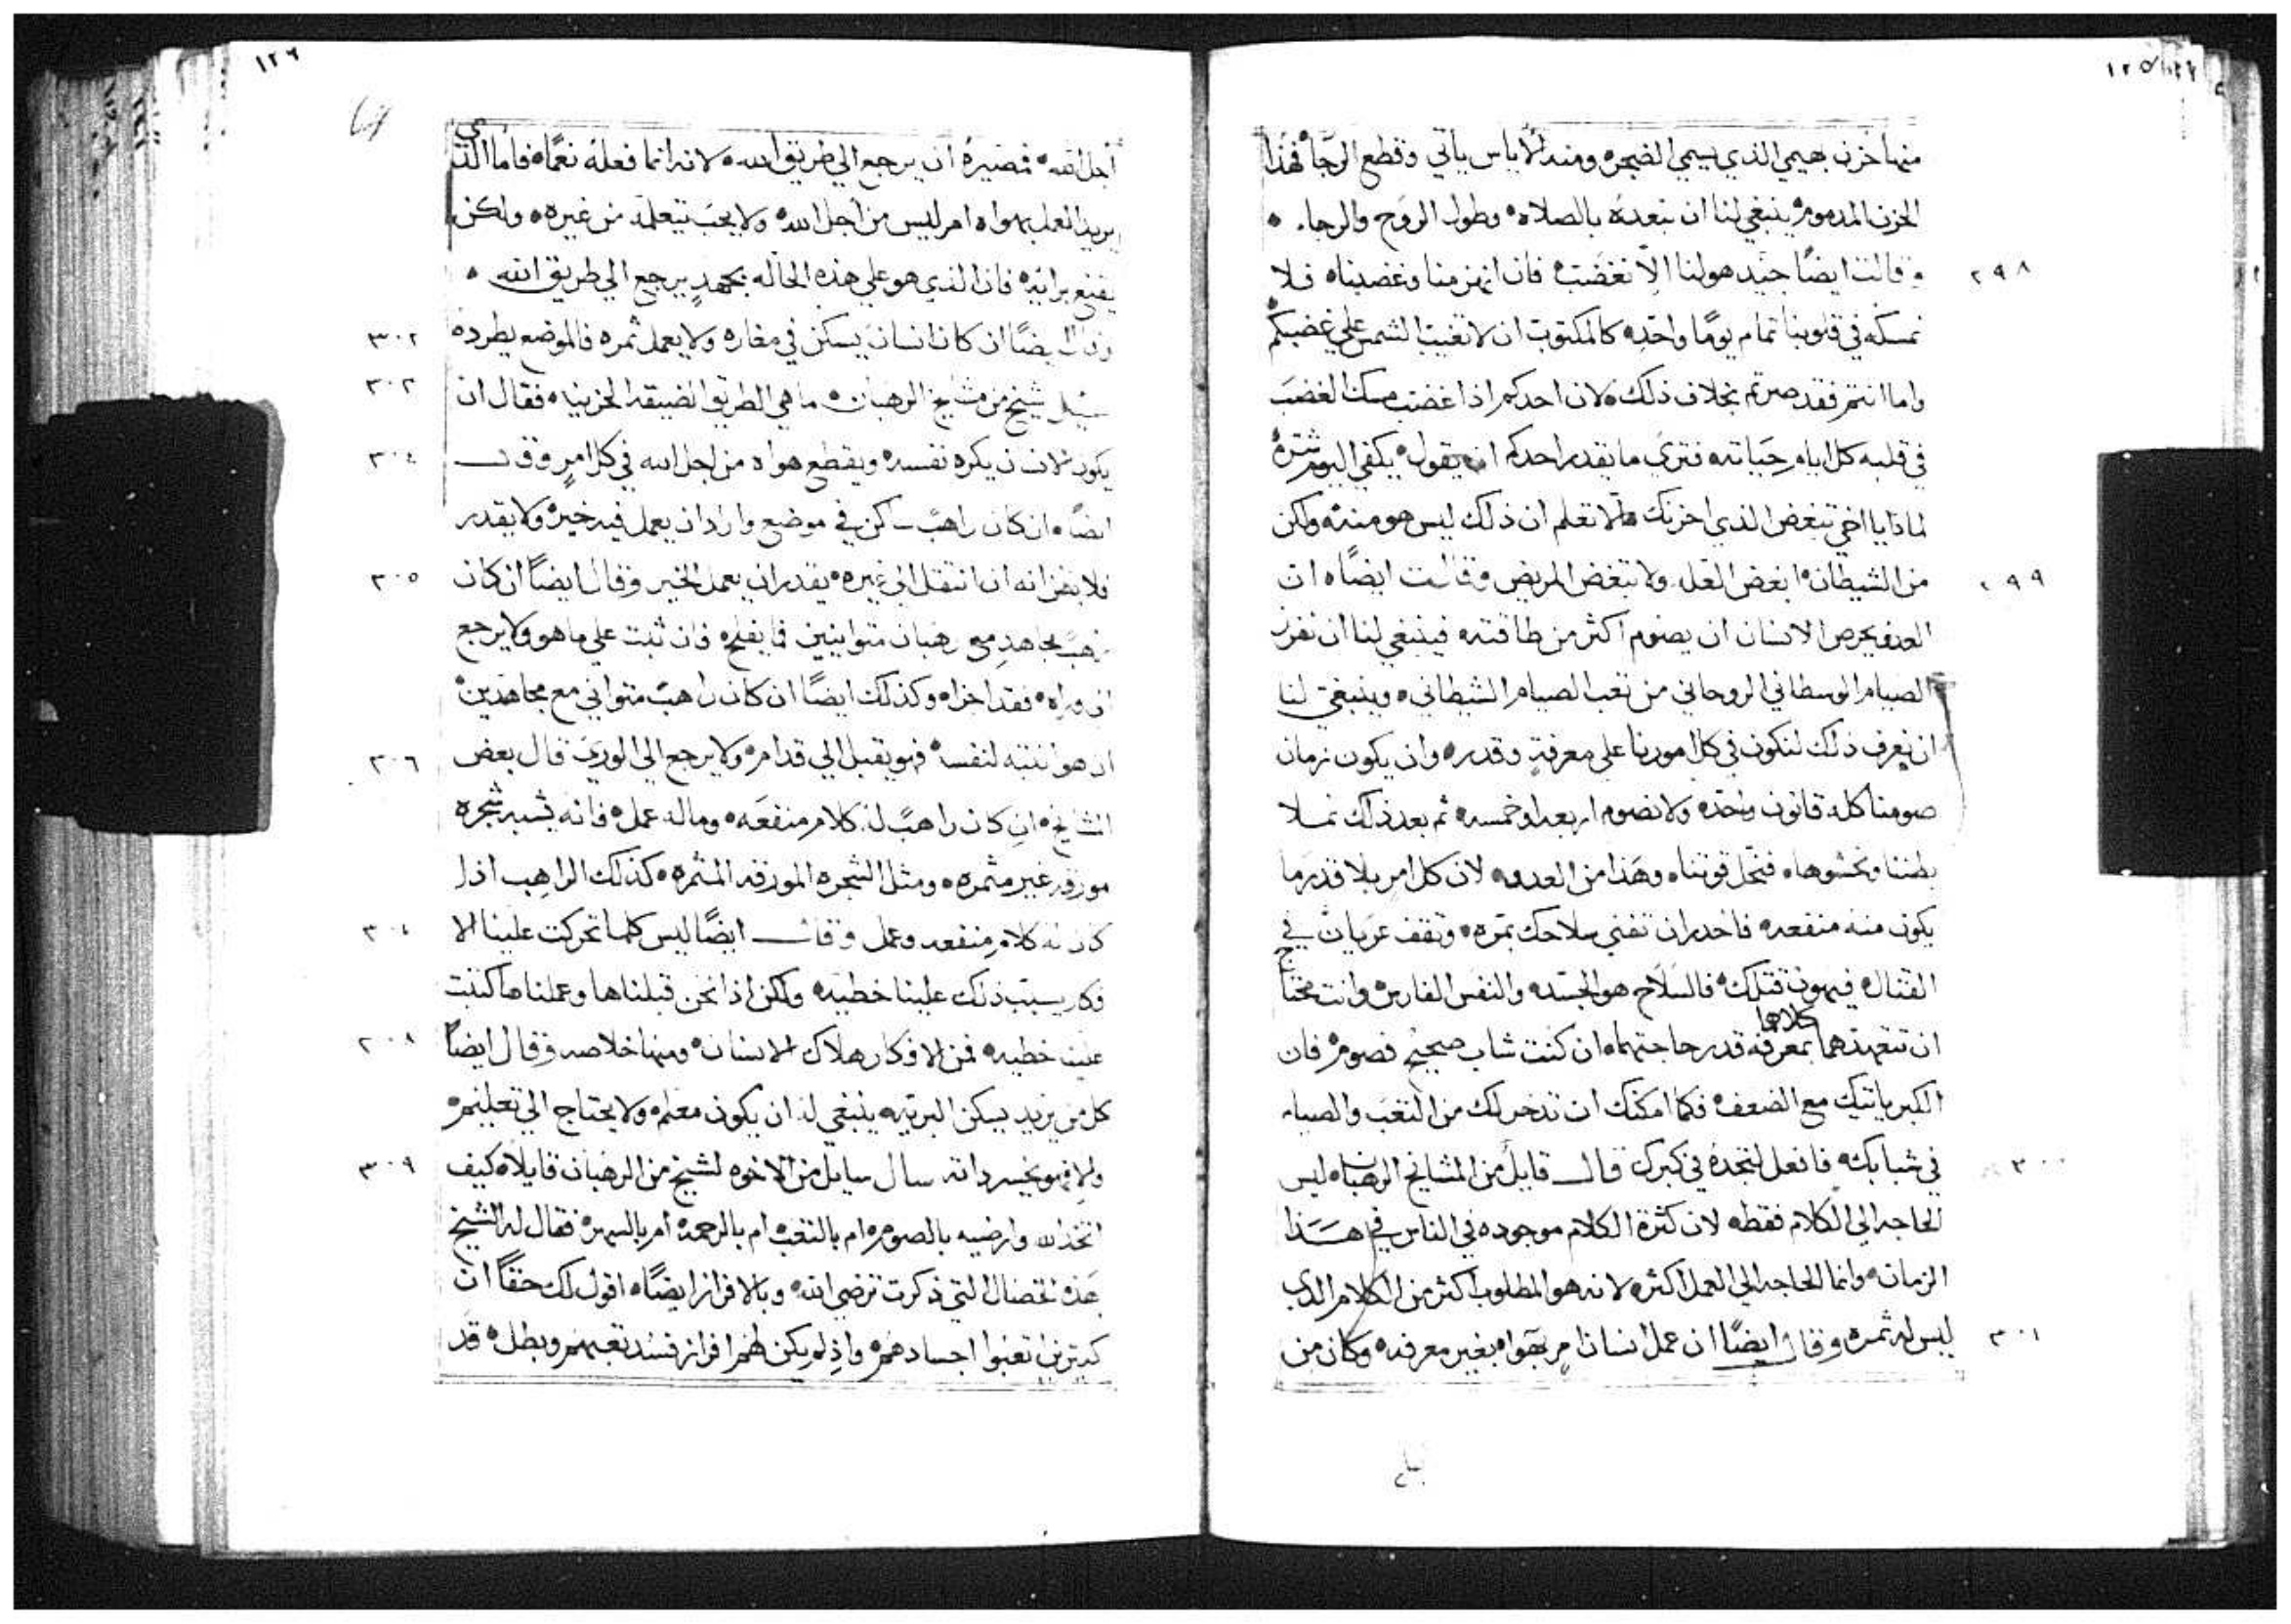 ١٢٥
منها حزن بهيمي الذي يسمي الضجره ومنه الاياس ياتي وقطع الرجا فهذا
الحزن المدموم ينبغي لنا ان نبعده بالصلاه وطول الروح والرجا.
٢٩٨
وقالت ايضًا جيد هو لنا الا نغضب فان انهزمنا وغضبناه فلا
نمسكه في قلوبنا تمام يومًا واحد كالمكتوب ان لا تغيب الشمس علي غضبكم
واما انتم فقد صرتم بخلاف ذلك لان احدكم اذا غضب مسك الغضب
في قلبه كل ايام حياته فتري ما يقدر احدكم ان يقول يكفي اليوم شره
لماذا يا اخي تبغض الذي احزنك الا تعلم ان ذلك ليس هو منه ولكن
٢٩٩
من الشيطان ابغض العله ولا تبغض المريض وقالت ايضًا ان
العدو يحرص الانسان ان يصوم اكثر من طاقته فينبغي لنا ان نفرز
الصيام الوسطاني الروحاني من تعب الصيام الشيطاني وينبغي لنا
ان نعرف ذلك لنكون في كل امورنا علي معرفةٍ وقدر وان يكون زمان
صومنا كله قانون واحد ولا نصوم اربعه او خمسه ثم بعد ذلك نملا
بطننا ونحشوها فتحل قوتنا وهذا من العدو لان كل امر بلا قدر ما
يكون منه منفعه فاحدر ان تفني سلاحك بمره وتقف عريان في
القتال فيهون قتلك فالسلاح هو الجسد والنفس الفارس وانت محتاج
ان تتعهدهما كلاهما بمعرفه قدر حاجتهما ان كنت شاب صحيح فصوم فان
الكبر ياتيك مع الضعف فكلما امكنك ان تدخر لك من التعب والصيام
٣٠٠
في شبابك فافعل لتجده في كبرك قال قايل من المشايخ الرهبان ليس
الحاجه الي الكلام فقط لان كثرة الكلام موجوده في الناس في هذا
الزمان وانما الحاجه الي العمل اكثر لانه هو المطلوب اكثر من الكلام الذي
٣٠١
ليس له ثمره وقال ايضًا ان عمل انسان امرٍ بهواه بغير معرفه وكان من
بلغ
١٢٦
اجل الله فمصيره ان يرجع الي طريق الله لانه انما فعله نعمًا فاما الذي
يريد العمل بهواه امر ليس من اجل الله ولا يحب يتعلمه من غيره ولكن
يقنع برايه فان الذي هو علي هذه الحاله بجهدٍ يرجع الي طريق الله
٣٠٢
وقال ايضًا ان كان انسان يسكن في مغاره ولا يعمل ثمره فالموضع يطرده
٣٠٣
سيل شيخ من مشايخ الرهبان ما هي الطريق الضيقه الحزينه فقال ان
٣٠٤
يكون الانسان يكره نفسه ويقطع هواه من اجل الله في كل امرٍ وقال
ايضًا ان كان راهبً ساكن في موضع واراد ان يعمل فيه خير ولا يقدر
٣٠٥
فلا يظن انه ان انتقل الي غيره يقدر ان يعمل الخير وقال ايضًا ان كان
راهبً مجاهد مع رهبان متوانيين فما يفلح فان ثبت علي ما هو ولا يرجع
الي وراه فقد اخزاه وكذلك ايضًا ان كان راهبً متواني مع مجاهدين
٣٠٦
ان هو انتبه لنفسه فهو يقبل الي قدام ولا يرجع الي الوري قال بعض
المشايخ ان كان راهبً له كلام منفعه وما له عمل فانه يشبه شجره
مورقه غير مثمره ومثل الشجره المورقه المثمره كذلك الراهب اذا
٣٠٧
كان له كلام منفعه وعمل وقال ايضًا ليس كلما تحركت علينا الا
فكار يسبب ذلك علينا خطيه ولكن اذا نحن قبلناها وعملناها كتبت
٣٠٨
علينا خطيه فمن الافكار هلاك الانسان ومنها خلاصه وقال ايضًا
كل من يريد يسكن البريه ينبغي له ان يكون معلم ولا يحتاج الي تعليم
٣٠٩
والا فهو يخسر ذاته سال سايل من الاخوه لشيخ من الرهبان قايلا كيف
اتخذ الله وارضيه بالصوم ام بالتعب ام بالرحمه ام بالسهر فقال له الشيخ
هذه الخصال التي ذكرت ترضي الله وبالافراز ايضًا اقول لك حقًا ان
كثيرين اتعبوا اجسادهم واذ لم يكن لهم افراز فسد تعبهم وبطل قد